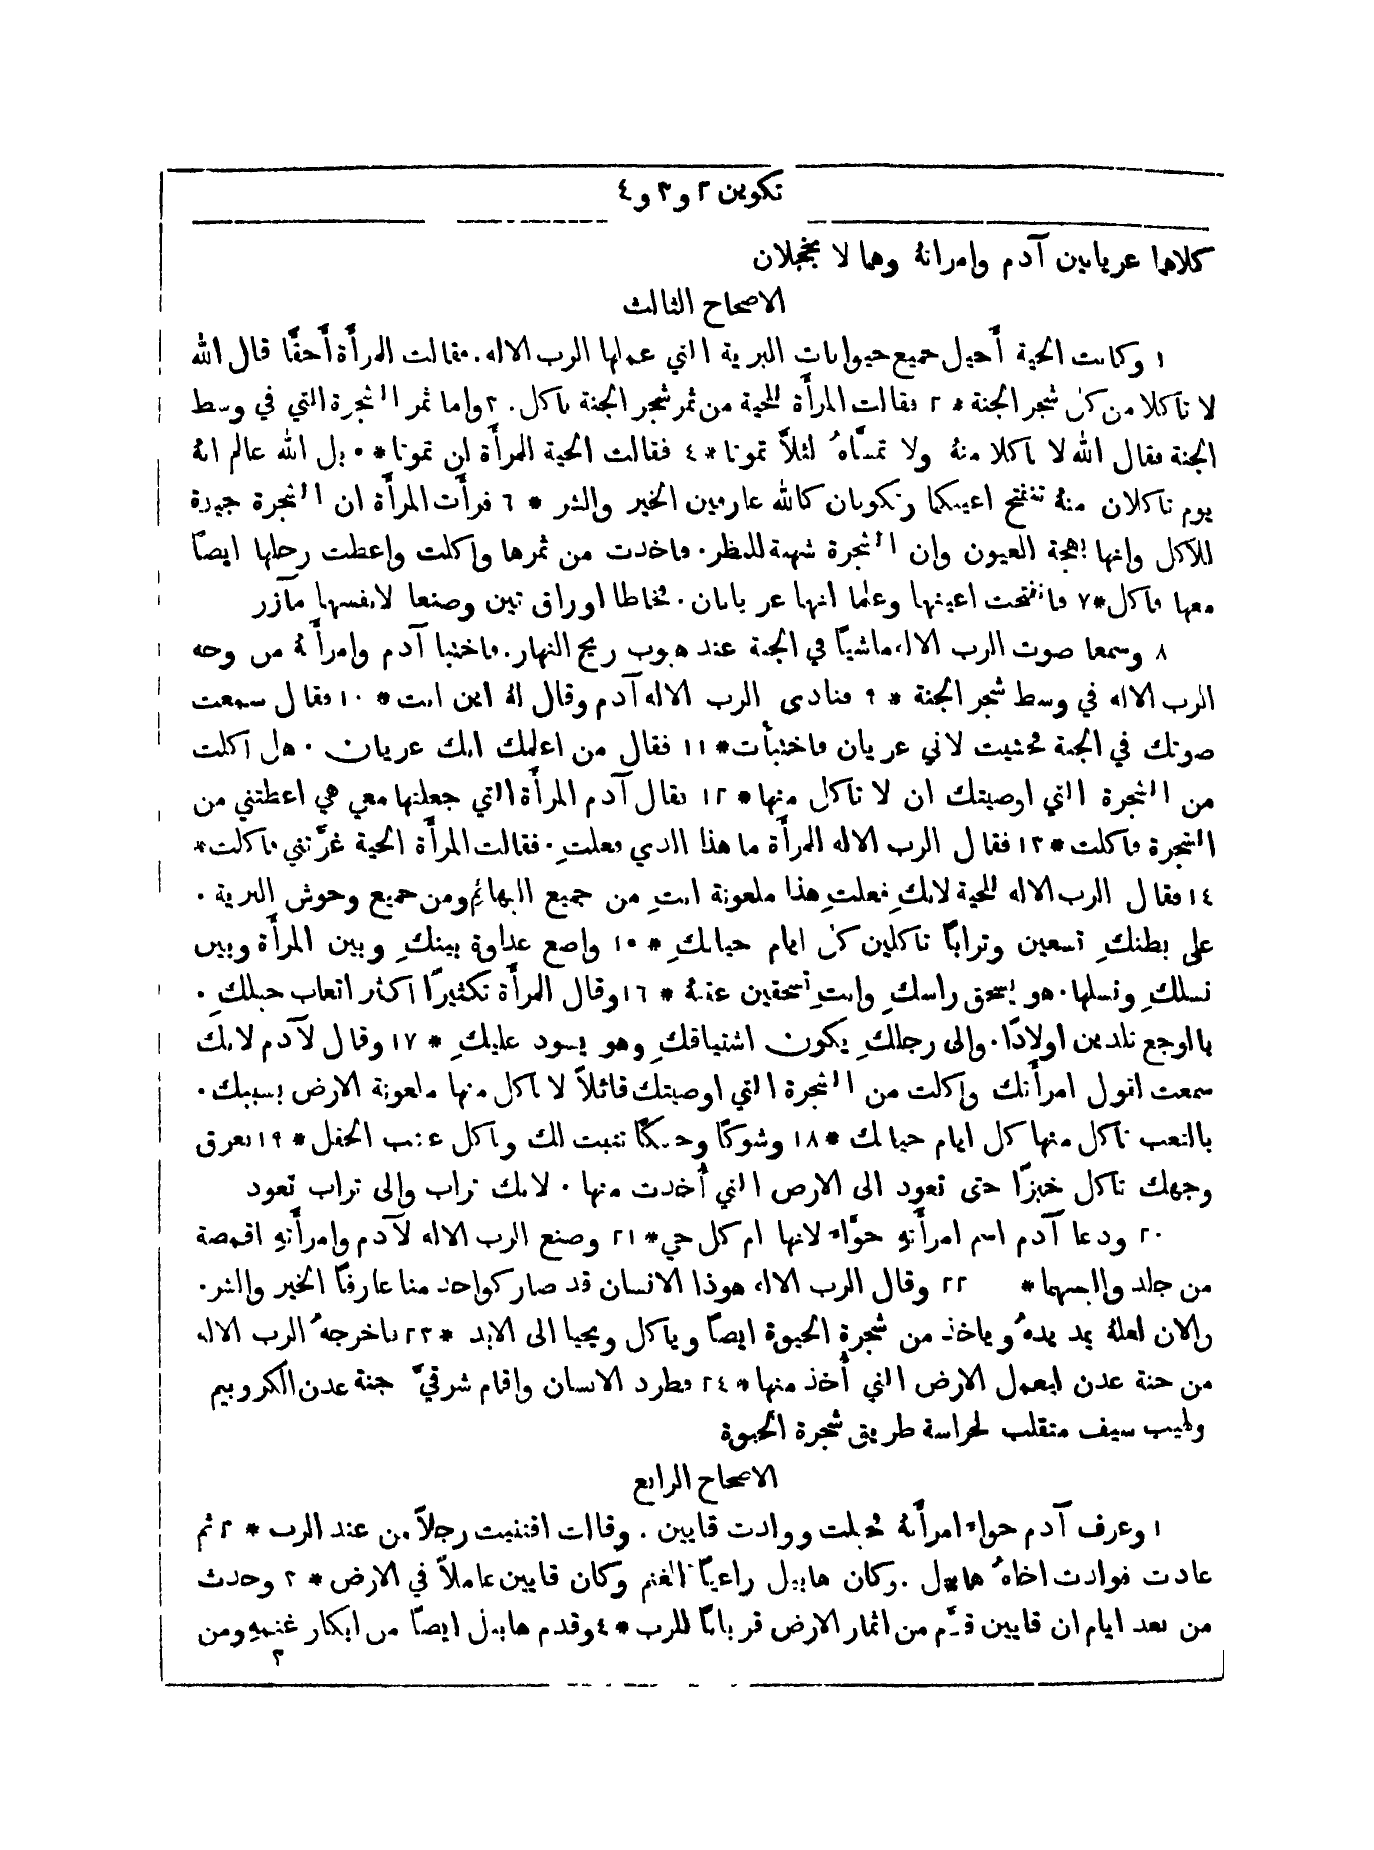 تكوين ٢ و ٣ و ٤
كلاهما عريانين آدم وامرأتهُ وهما لا يخجلان
الاصحاح الثالث
١ وكانت الحية أحيل جميع حيوانات البرية التي عملها الرب الاله. فقالت للمرأة أحقًّا قال الله
لا تاكلا من كل شجر الجنة * ٢ فقالت المرأة للحية من ثمر شجر الجنة ناكل. ٣ واما ثمر الشجرة التي في وسط
الجنة فقال الله لا تاكلا منهُ ولا تمسَّاهُ لئلاَّ تموتا * ٤ فقالت الحية للمرأة لن تموتا * ٥ بل الله عالم انهُ
يوم تاكلان منهُ تنفتح اعينكما وتكونان كالله عارفين الخير والشر * ٦ فرأَت المرأة ان الشجرة جيدة
للاكل وانها بهجة للعيون وان الشجرة شهية للنظر. فاخذت من ثمرها واكلت واعطت رجلها ايضًا
معها فاكل * ٧ فانفتحت اعينهما وعلما انهما عريانان. فخاطا اوراق تين وصنعا لانفسهما مآزر
٨ وسمعا صوت الرب الاله ماشيًا في الجنة عند هبوب ريح النهار. فاختبا آدم وامرأتهُ من وجه
الرب الاله في وسط شجر الجنة * ٩ فنادى الرب الاله آدم وقال لهُ اين انت * ١٠ فقال سمعت
صوتك في الجنة فخشيت لاني عريان فاختبأت * ١١ فقال من اعلمك انك عريان. هل اكلت
من الشجرة التي اوصيتك ان لا تاكل منها * ١٢ فقال آدم المرأة التي جعلتها معي هي اعطتني من
الشجرة فاكلت * ١٣ فقال الرب الاله للمرأة ما هذا الذي فعلتِ. فقالت المرأة الحية غرَّتني فاكلت *
١٤ فقال الرب الاله للحية لانكِ فعلتِ هذا ملعونة انتِ من جميع البهائم ومن جميع وحوش البرية.
على بطنكِ تسعين وترابًا تاكلين كل ايام حياتكِ * ١٥ واضع عداوة بينكِ وبين المرأة وبين
نسلكِ ونسلها. هو يسحق راسكِ وانتِ تسحقين عقبهُ * ١٦ وقال للمرأة تكثيرًا اكثر اتعاب حبلكِ.
بالوجع تلدين اولادًا. والى رجلكِ يكون اشتياقكِ وهو يسود عليكِ * ١٧ وقال لآدم لانك
سمعت لقول امرأتك واكلت من الشجرة التي اوصيتك قائلاً لا تاكل منها ملعونة الارض بسببك.
بالتعب تاكل منها كل ايام حياتك * ١٨ وشوكًا وحسكًا تنبت لك وتاكل عشب الحقل * ١٩ بعرق
وجهك تاكل خبزًا حتى تعود الى الارض التي أُخذت منها. لانك تراب والى تراب تعود
٢٠ ودعا آدم اسم امرأتهِ حوَّاء لانها ام كل حي * ٢١ وصنع الرب الاله لآدم وامرأتهِ اقمصة
من جلد والبسهما * ٢٢ وقال الرب الاله هوذا الانسان قد صار كواحد منا عارفًا الخير والشر.
والان لعلهُ يمد يدهُ وياخذ من شجرة الحيوة ايضًا وياكل ويحيا الى الابد * ٢٣ فاخرجهُ الرب الاله
من جنة عدن ليعمل الارض التي أُخذ منها * ٢٤ فطرد الانسان واقام شرقيَّ جنة عدن الكروبيم
ولهيب سيف متقلب لحراسة طريق شجرة الحيوة
الاصحاح الرابع
١ وعرف آدم حواء امرأتهُ فحبلت وولدت قايين. وقالت اقتنيت رجلاً من عند الرب * ٢ ثم
عادت فولدت اخاهُ هابيل. وكان هابيل راعيًا للغنم وكان قايين عاملاً في الارض * ٣ وحدث
من بعد ايام ان قايين قدَّم من اثمار الارض قربانًا للرب * ٤ وقدم هابيل ايضًا من ابكار غنمهِ ومن
٣